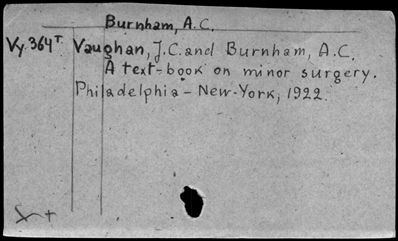 Burnham, A.C.
Vy.364T Vaughan, J.C. and Burnham, A.C.
A text-book on minor surgery.
Philadelphia - New-York, 1922.